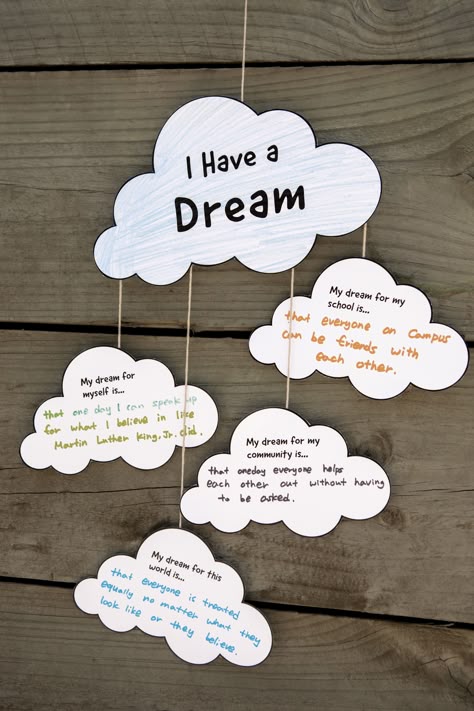 I Have a
Dream
My dream for my
school is...
that everyone on Campus
can be friends with
each other.
My dream for
myself is...
that one day I can speak up
for what I believe in like
Martin Luther King, Jr. did.
My dream for my
community is...
that oneday everyone helps
each other out without having
to be asked.
My dream for this
world is...
that everyone is treated
equally no matter what they
look like or they believe.